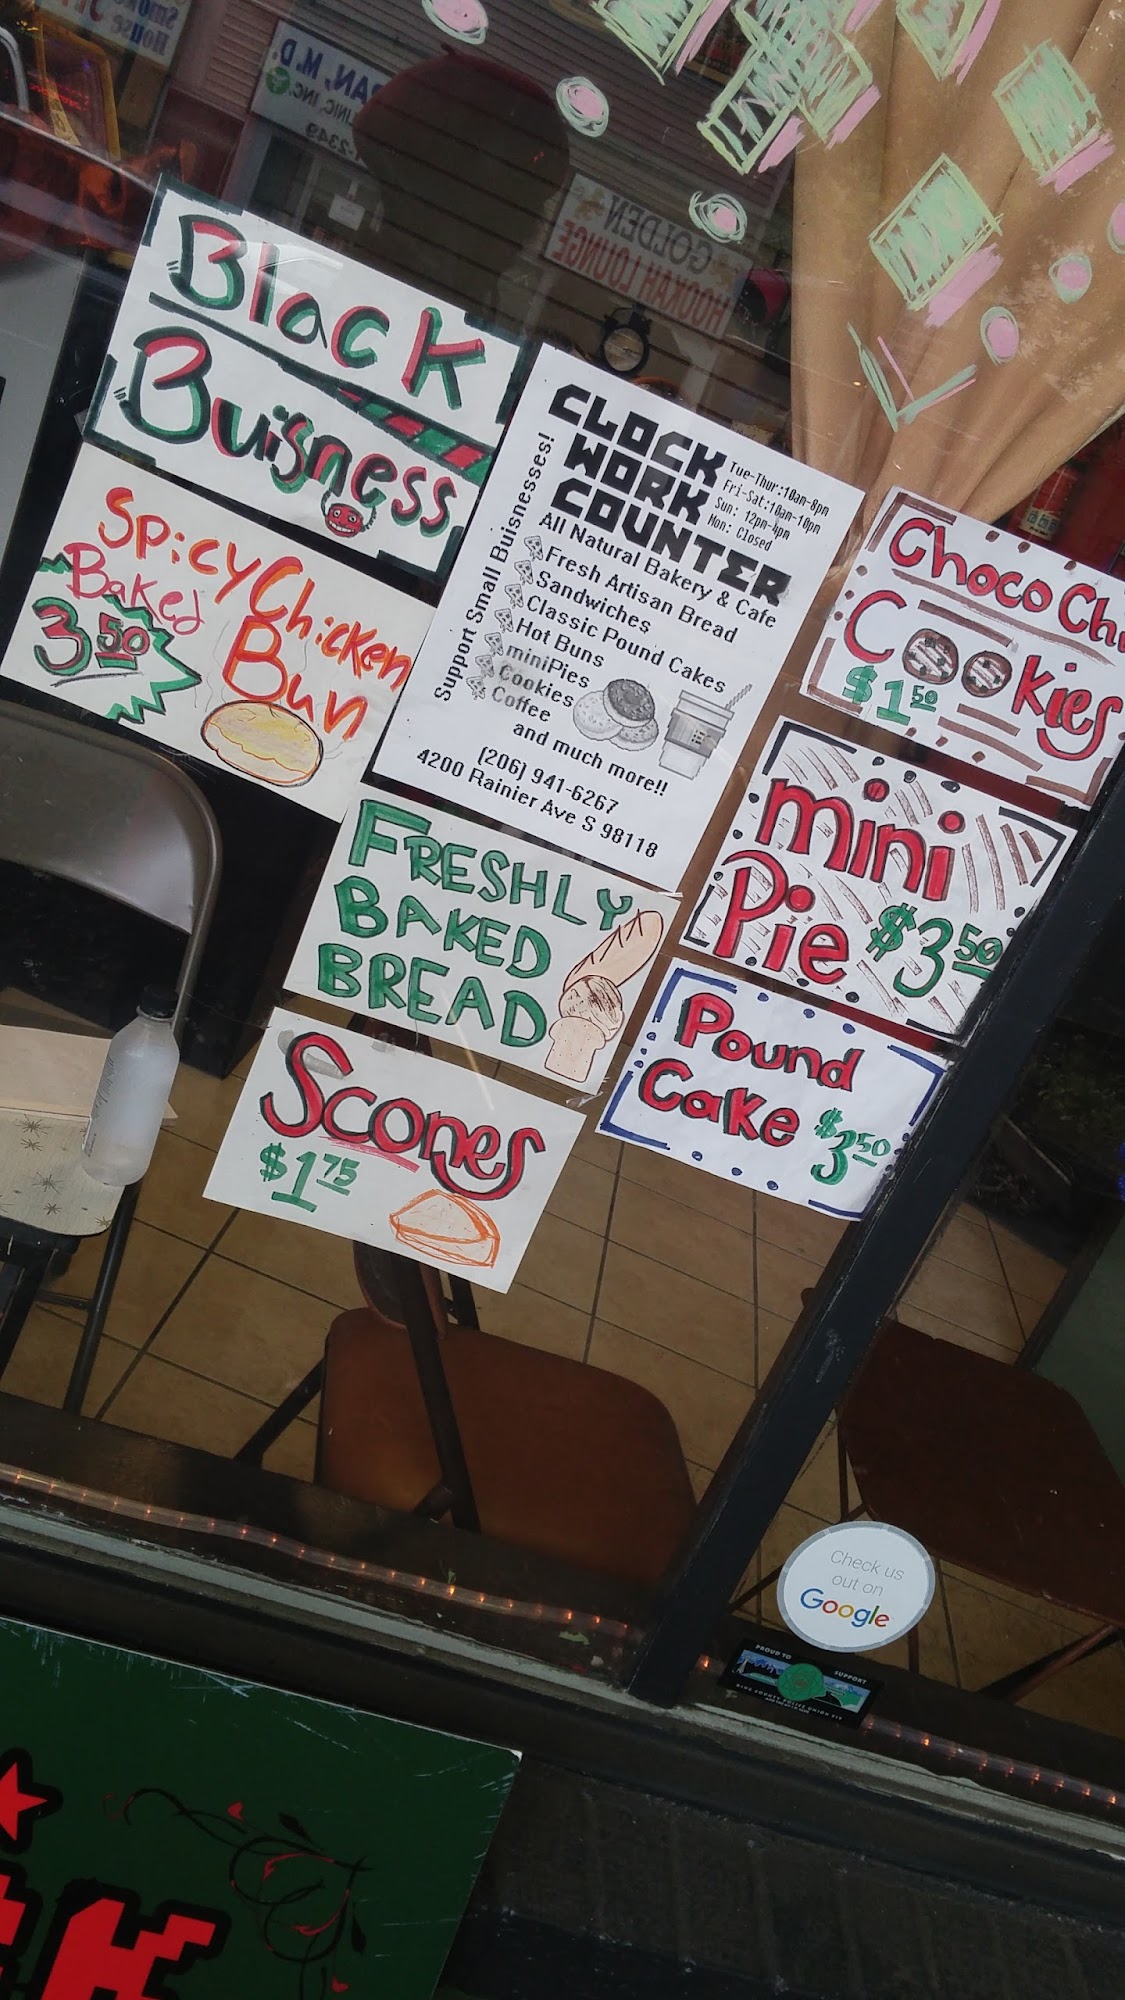 Black
Buisness
Spicy Chicken
Baked
Bun
3.50
CLOCK
WORK
COUNTER
Tue-Thur:10am-8pm
Fri-Sat:10am-10pm
Sun: 12pm-4pm
Mon: Closed
All Natural Bakery & Cafe
Support Small Buisnesses!
Fresh Artisan Bread
Sandwiches
Classic Pound Cakes
Hot Buns
miniPies
Cookies
Coffee
and much more!!
(206) 941-6267
4200 Rainier Ave S 98118
Choco Chi
Cookies
$1.50
mini
Pie $3.50
FRESHLY
BAKED
BREAD
Pound
Cake $3.50
Scones
$1.75
Check us
out on
Google
PROUD TO SUPPORT
GOLDEN
HOOKAH LOUNGE